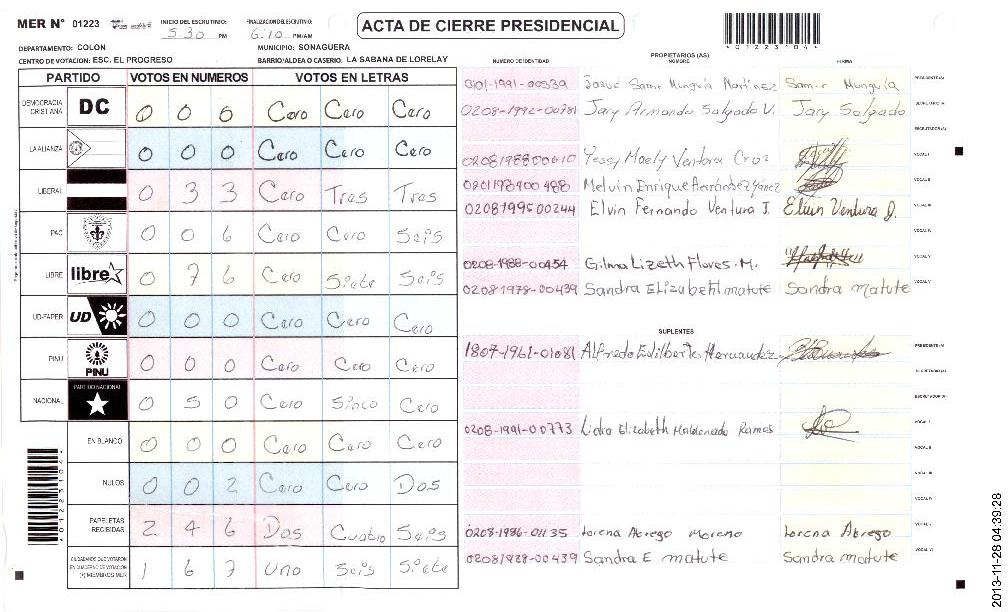 MER N° 01223
INICIO DEL ESCRUTINIO: 5:30 PM
FINALIZACION DEL ESCRUTINIO: 6:10 PM/AM
ACTA DE CIERRE PRESIDENCIAL
01223104
DEPARTAMENTO: COLON
MUNICIPIO: SONAGUERA
CENTRO DE VOTACION: ESC. EL PROGRESO
BARRIO/ALDEA O CASERIO: LA SABANA DE LORELAY
PARTIDO VOTOS EN NUMEROS VOTOS EN LETRAS
DEMOCRACIA CRISTIANA DC 0 0 0 Cero Cero Cero
LA ALIANZA 0 0 0 Cero Cero Cero
LIBERAL 0 3 3 Cero Tres Tres
PAC 0 0 6 Cero Cero Seis
LIBRE libre 0 7 6 Cero Siete Seis
UD-FAPER UD 0 0 0 Cero Cero Cero
PINU PINU 0 0 0 Cero Cero Cero
NACIONAL PARTIDO NACIONAL 0 5 0 Cero Sinco Cero
EN BLANCO 0 0 0 Cero Cero Cero
NULOS 0 0 2 Cero Cero Dos
PAPELETAS RECIBIDAS 2 4 6 Dos Cuatro Seis
CIUDADANOS QUE VOTARON EN CUADERNO DE VOTACION (+) MIEMBROS MER 1 6 7 Uno Seis Siete
01223104
PROPIETARIOS (AS)
NUMERO DE IDENTIDAD NOMBRE FIRMA
0101-1991-00539 Josue Samir Munguia Martinez Samir Munguia PRESIDENTE(A)
0208-1992-00781 Jary Armando Salgado V. Jary Salgado SECRETARIO(A)
ESCRUTADOR(A)
0208198800610 Yessy Maely Ventura Cruz VOCAL I
Melvin Enrique VOCAL II
0208199500244 Elvin Fernando Ventura J. Elvin Ventura J. VOCAL III
VOCAL IV
0208-1988-00454 Gilma Lizeth Flores. M. VOCAL V
0208-1978-00439 Sandra Elizabeth matute Sandra matute VOCAL VI
SUPLENTES
1807-1961-01081 Alfredo Edilberto Hernandez PRESIDENTE(A)
SECRETARIO(A)
ESCRUTADOR(A)
0208-1991-00773 Lidia Elizabeth Maldonado Ramos VOCAL I
VOCAL II
VOCAL III
VOCAL IV
0208-1986-01135 Lorena Abrego Moreno Lorena Abrego VOCAL V
Sandra E matute Sandra matute VOCAL VI
2013-11-28 04:39:28